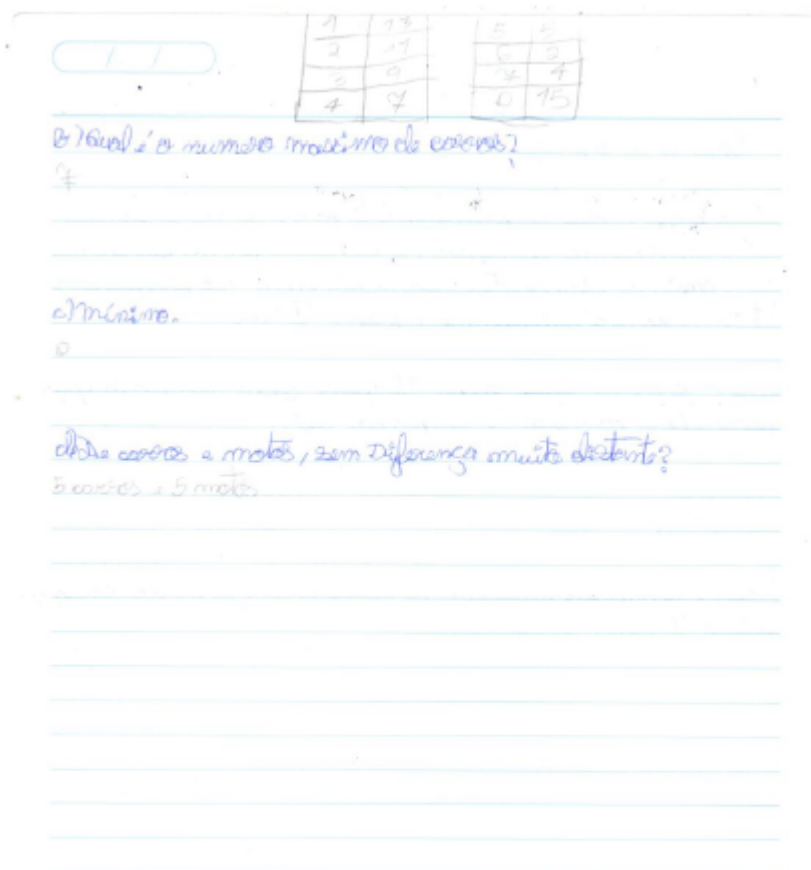 1 13 5 5
2 11 6 3
3 9 7 1
4 7 0 15
b) Qual é o numero maximo de carros?
7
c) Mínimo.
0
d) De carros e motos, sem Diferença muito distante?
5 carros e 5 motos